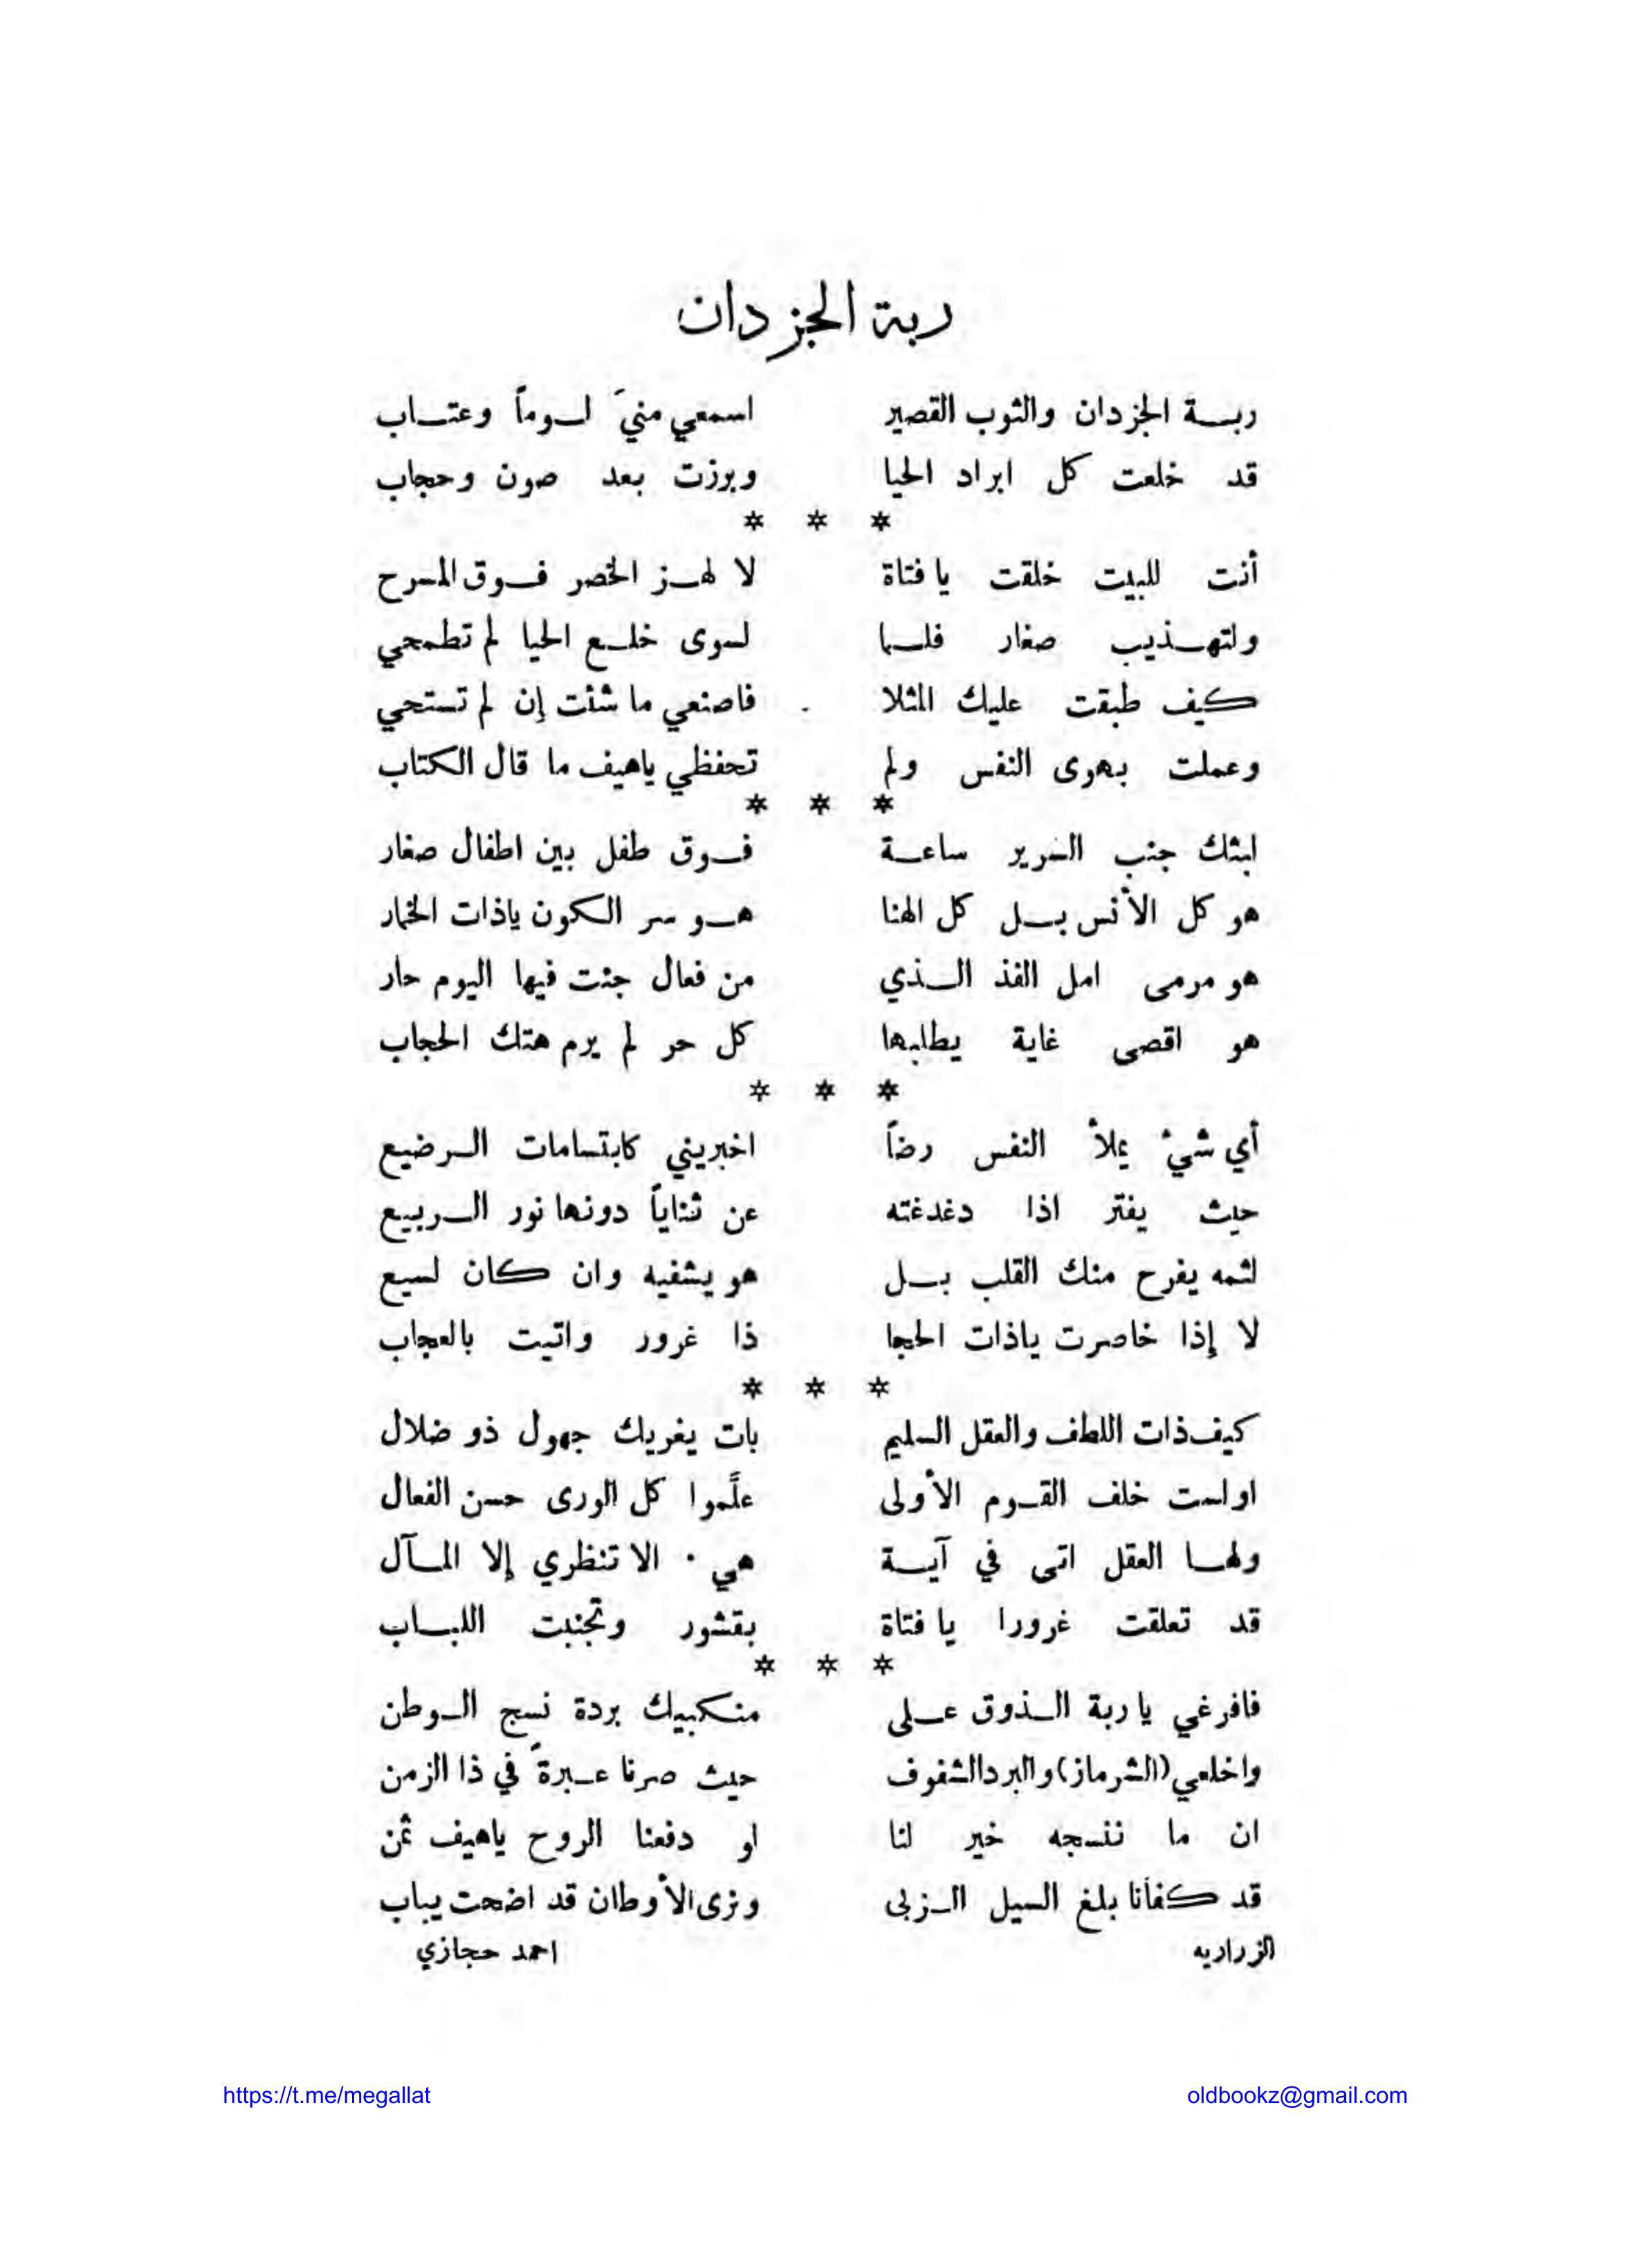 ربة الجزدان
ربة الجزدان والثوب القصير اسمعي منيَ لوماً وعتاب
قد خلعت كل ابراد الحيا وبرزت بعد صون وحجاب
* * *
أنت للبيت خلقت يا فتاة لا لهز الخصر فوق المسرح
ولتهذيب صغار فلما لسوى خلع الحيا لم تطمحي
كيف طبقت عليك المثلا فاصنعي ما شئت إن لم تستحي
وعملت بهوى النفس ولم تحفظي ياهيف ما قال الكتاب
* * *
ابثك جنب السرير ساعة فوق طفل بين اطفال صغار
هو كل الأنس بل كل الهنا هو سر الكون ياذات الخمار
هو مرمى امل الفذ الذي من فعال جئت فيها اليوم حار
هو اقصى غاية يطلبها كل حر لم يرم هتك الحجاب
* * *
أي شيءٌ يملأ النفس رضاً اخبريني كابتسامات الرضيع
حيث يفتر اذا دغدغته عن ثناياً دونها نور الربيع
لثمه يفرح منك القلب بل هو يشفيه وان كان لسيع
لا إذا خاصرت ياذات الحجا ذا غرور واتيت بالعجاب
* * *
كيف ذات اللطف والعقل السليم بات يغريك جهول ذو ضلال
اولست خلف القوم الأولى علَّموا كل الورى حسن الفعال
ولها العقل اتى في آية هي . الا تنظري إلا المآل
قد تعلقت غرورا يا فتاة بقشور وتجنبت اللباب
* * *
فافرغي يا ربة الذوق على منكبيك بردة نسج الوطن
واخلعي (الشرماز) والبرد الشفوف حيث صرنا عبرةً في ذا الزمن
ان ما ننسجه خير لنا او دفعنا الروح ياهيف ثمن
قد كفانا بلغ السيل الزبى ونرى الأوطان قد اضحت يباب
الزراريه احمد حجازي
https://t.me/megallat oldbookz@gmail.com